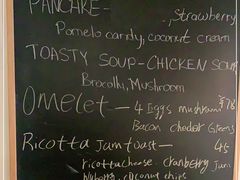 PANCAKE-
, Strawberry
Pomelo candy, coconut cream
TOASTY SOUP-CHICKEN SOUP
Brocolli, Mushroom
Omelet - 4 Eggs mushroom $78
Bacon chedder Greens
Ricotta Jam toast - 45
ricotta cheese - cranberry jam
coconut chips